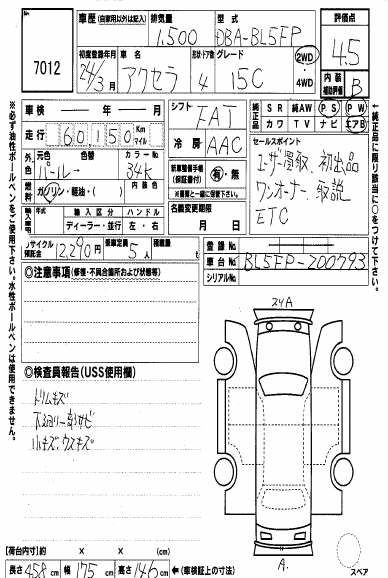 No.
7012
車歴 (自家用以外は記入)
排気量
1,500
型式
DBA-BL5FP
評価点
4.5
初度登録年月
24/3月
車名
アクセラ
形状・ドア数
4
グレード
15C
2WD
4WD
内装
補助評価
B
車検 年 月
走行 60,150 Km マイル
元色 パール 色替
カラーNo. 34K
燃料 ガソリン・軽油・( )
内装色
輸入車
年式
輸入区分 ディーラー・並行
ハンドル 左・右
リサイクル預託金 12,290円
乗車定員 5人
積載量 t
シフト FAT
冷房 AAC
新車整備手帳(保証書付)
有・無
※書類と一緒に保管下さい。
名義変更期限
月 日
純正品
SR 純AW PS PW
カワ TV ナビ エアB
セールスポイント
ユーザー買取、初出品
ワンオーナー、取説
ETC
登録No.
車台No. BL5FP-200793
シリアルNo.
◎注意事項(修復・不具合箇所および状態等)
◎検査員報告(USS使用欄)
トリムキズ
下廻り一部サビ
小キズ、ウスキズ
スタA
A
スペア
【荷台内寸】約 × × (cm)
長さ 458 cm 幅 175 cm 高さ 146 cm ←(車検証上の寸法)
※必ず油性ボールペンをご使用下さい。水性ボールペンは使用できません。
※純正品に限り該当に○をつけて下さい。